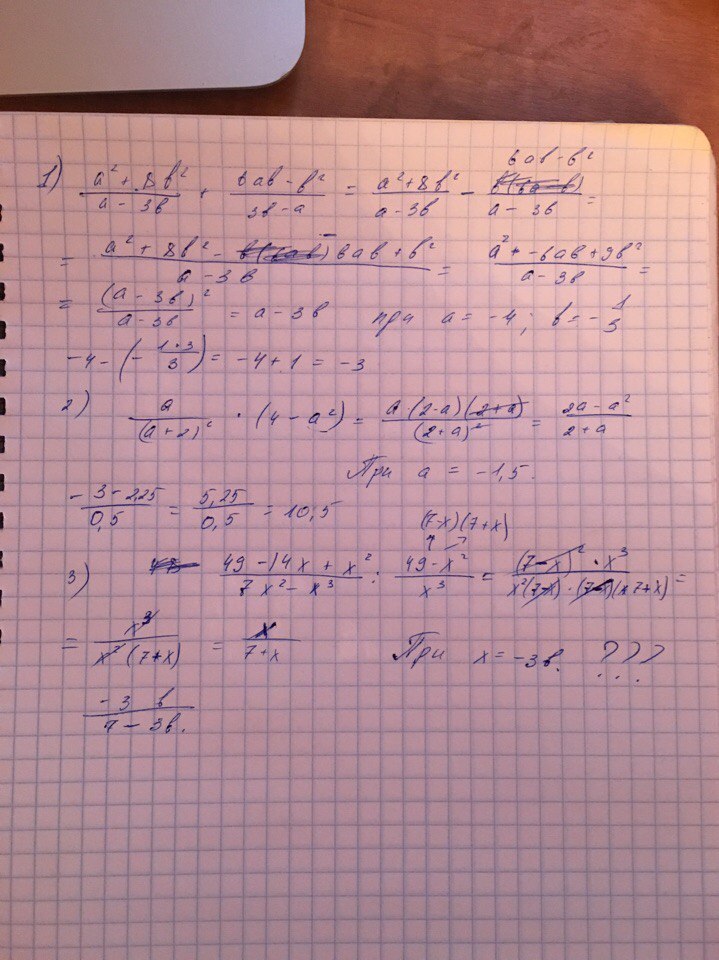 6ab-b²
1) (a²+8b²)/(a-3b) + (6ab-b²)/(3b-a) = (a²+8b²)/(a-3b) - /(a-3b) =
= (a²+8b²- 6ab+b²)/(a-3b) = (a²+-6ab+9b²)/(a-3b) =
= (a-3b)²/(a-3b) = a-3b при a=-4; b=-1/3
-4-(-(1·3)/3) = -4+1 = -3
2) a/(a+2)² · (4-a²) = (a·(2-a)(2+a))/(2+a)² = (2a-a²)/(2+a)
При a = -1,5.
(-3-2,25)/0,5 = 5,25/0,5 = 10,5
(7-x)(7+x)
3) (49-14x+x²)/(7x²-x³) : (49-x²)/x³ = ((7-x)²·x³)/(x²(7-x)·(7-x)(x7+x)) =
= x³/(x²(7+x)) = x/(7+x) При x=-3в. ???
(-3 в)/(7-3в.)